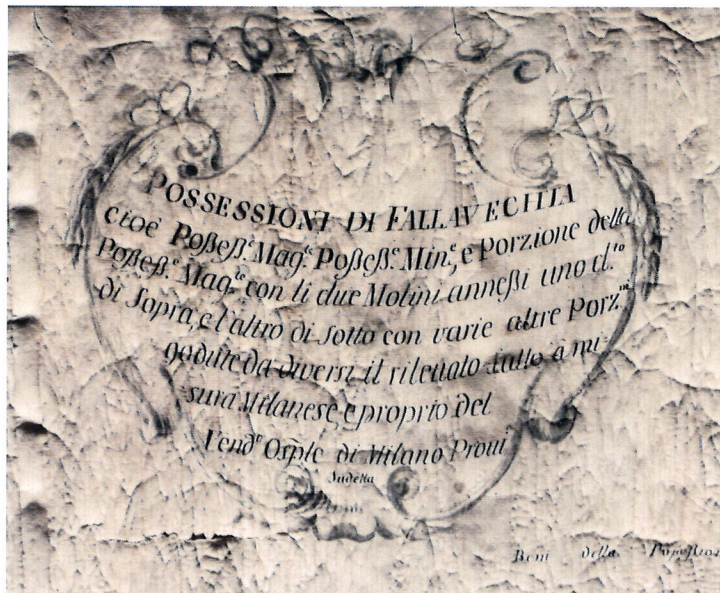 POSSESSIONI DI FALLAVECHIA
cioè Poßeß.e Mag.e Poßeß.e Min.e, e Porzione della
Poßeß.e Mag.e con li due Molini anneßi uno d.to
di Sopra, e l'altro di sotto con varie altre Porz.ni
godute da diversi il rilevato tutto à mi-
sura Milanese, e proprio del
Vend.o Osple di Milano
Sudetta
Beni della